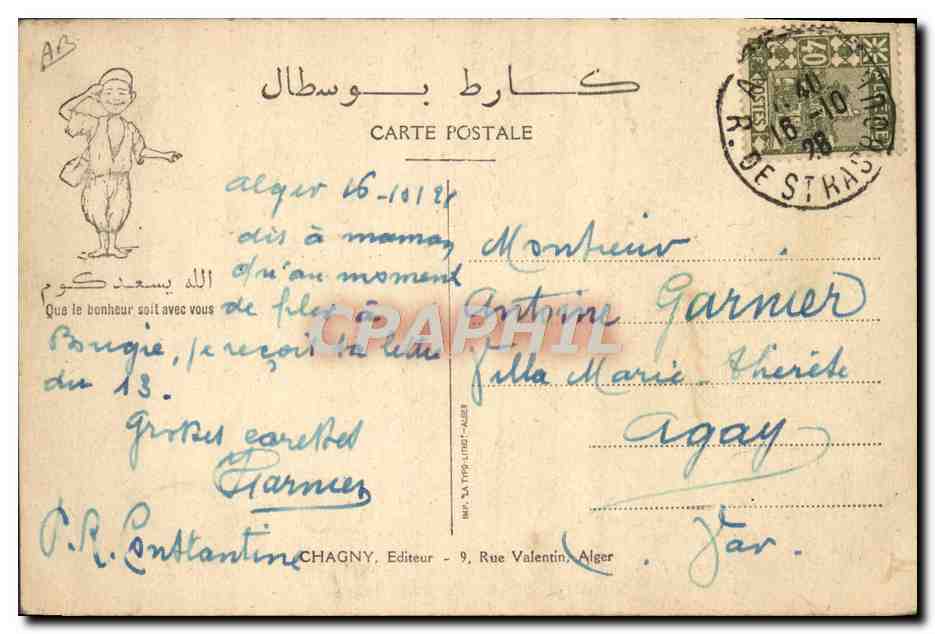 AB
كارط بوسطال
CARTE POSTALE
40
POSTES
16 -10
28
R. DE STRASBOURG
Alger 16-10/28
dis à maman
qu'au moment
de filer à
Bougie, je reçois ta lettre
du 13.
Grosses caresses
Garnier
P.R. Constantine
الله يسعدكوم
Que le bonheur soit avec vous
Monsieur
Antoine Garnier
Villa Marie-Thérèse
Agay
(. Var.
IMP. "LA TYPO-LITHO"-ALGER
CHAGNY, Editeur - 9, Rue Valentin, Alger
CPRAPHIL